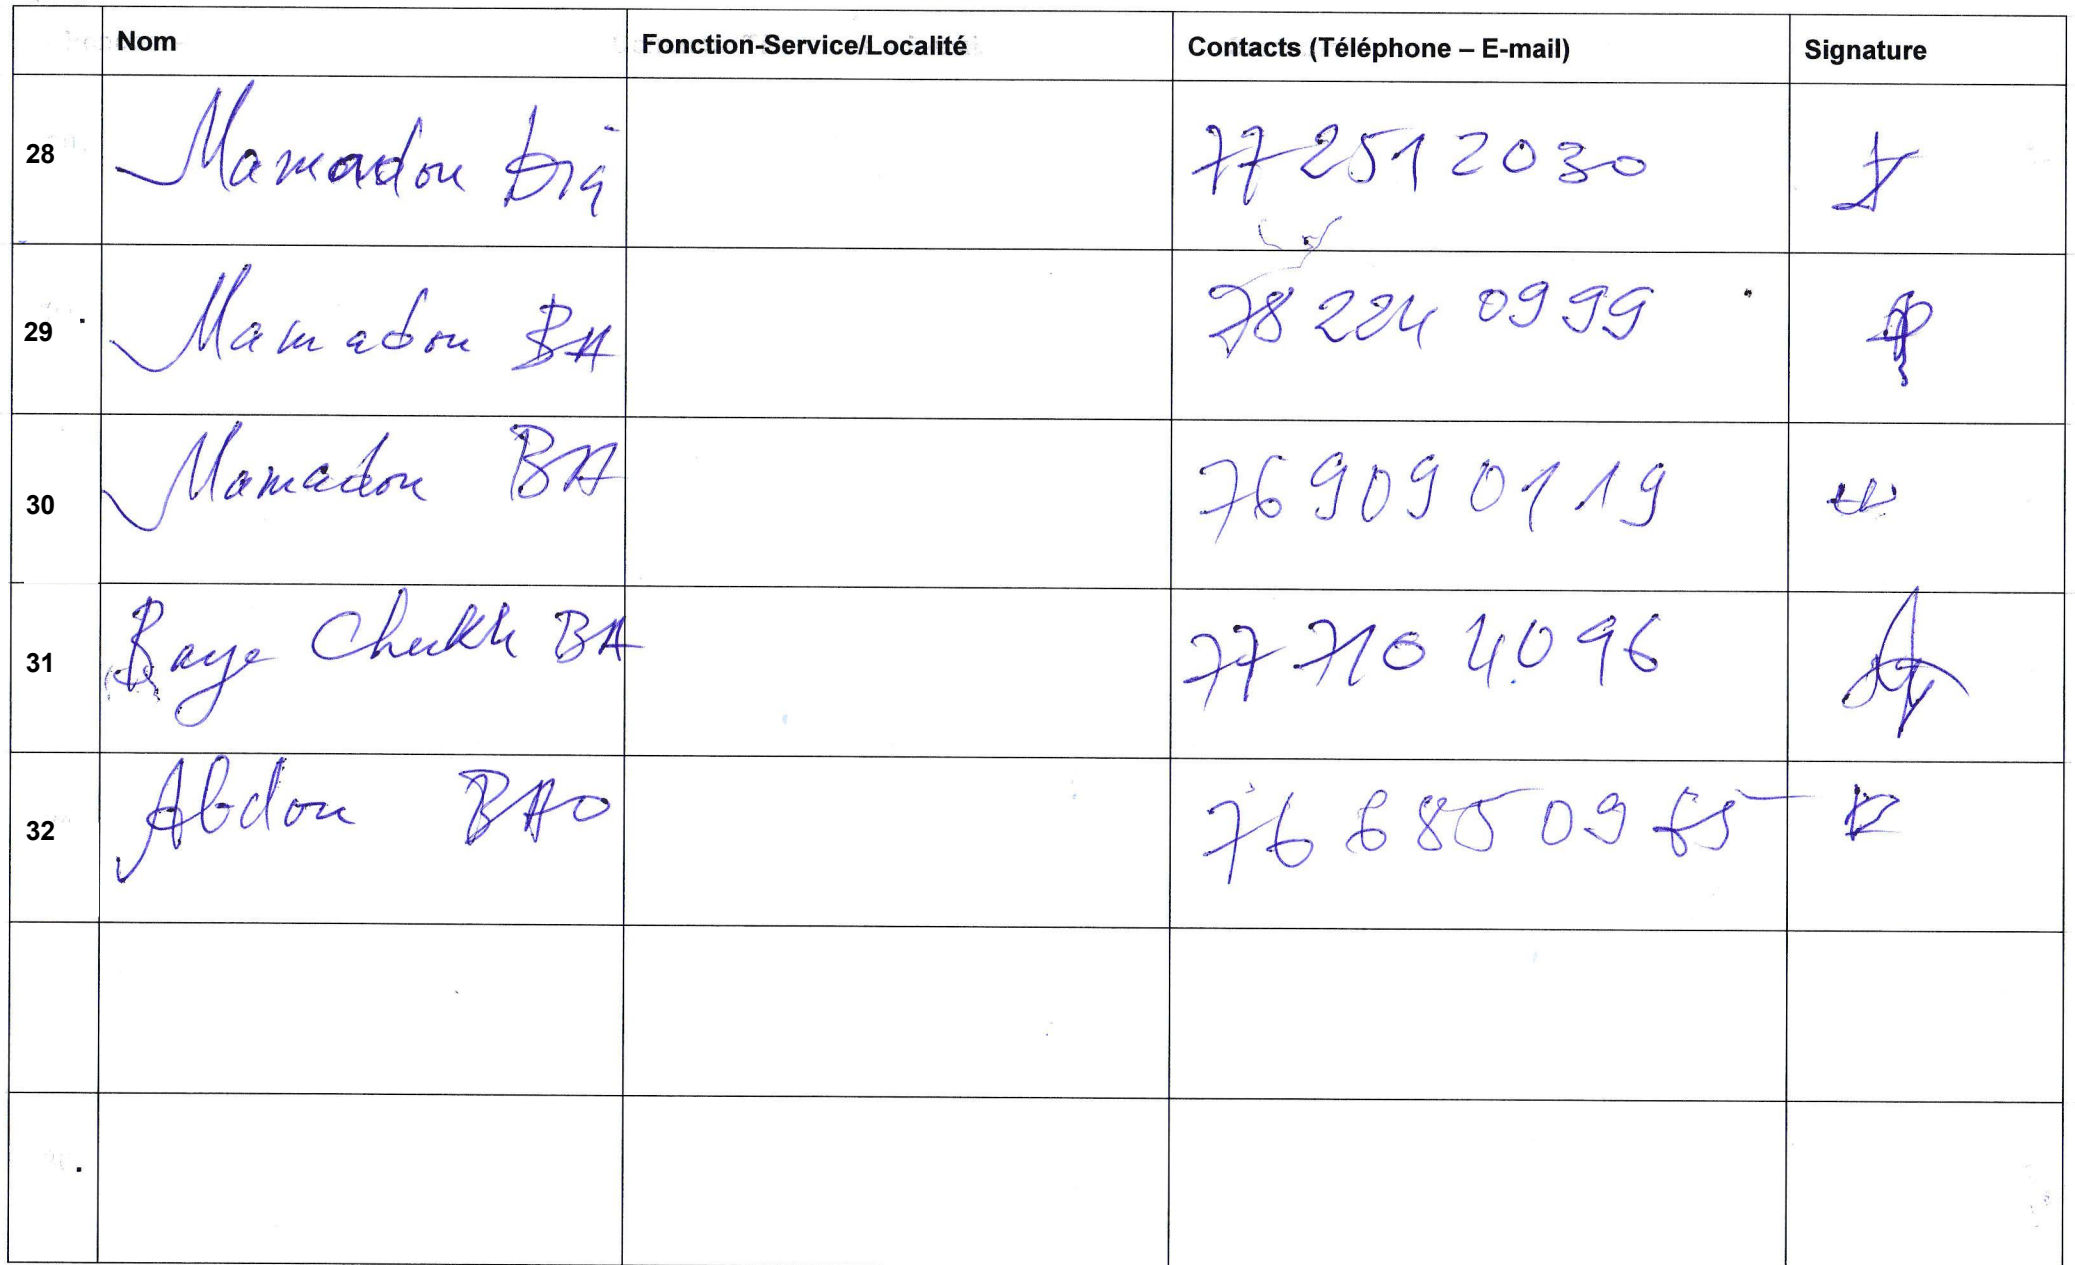 Nom Fonction-Service/Localité Contacts (Téléphone – E-mail) Signature
28 Mamadou Dia 77 251 2030
29 Mamadou BA 78 224 0999
30 Mamadou BA 76 909 01 19
31 Baye Cheikh BA 77 710 40 96
32 Abdou BAO 76 685 09 65